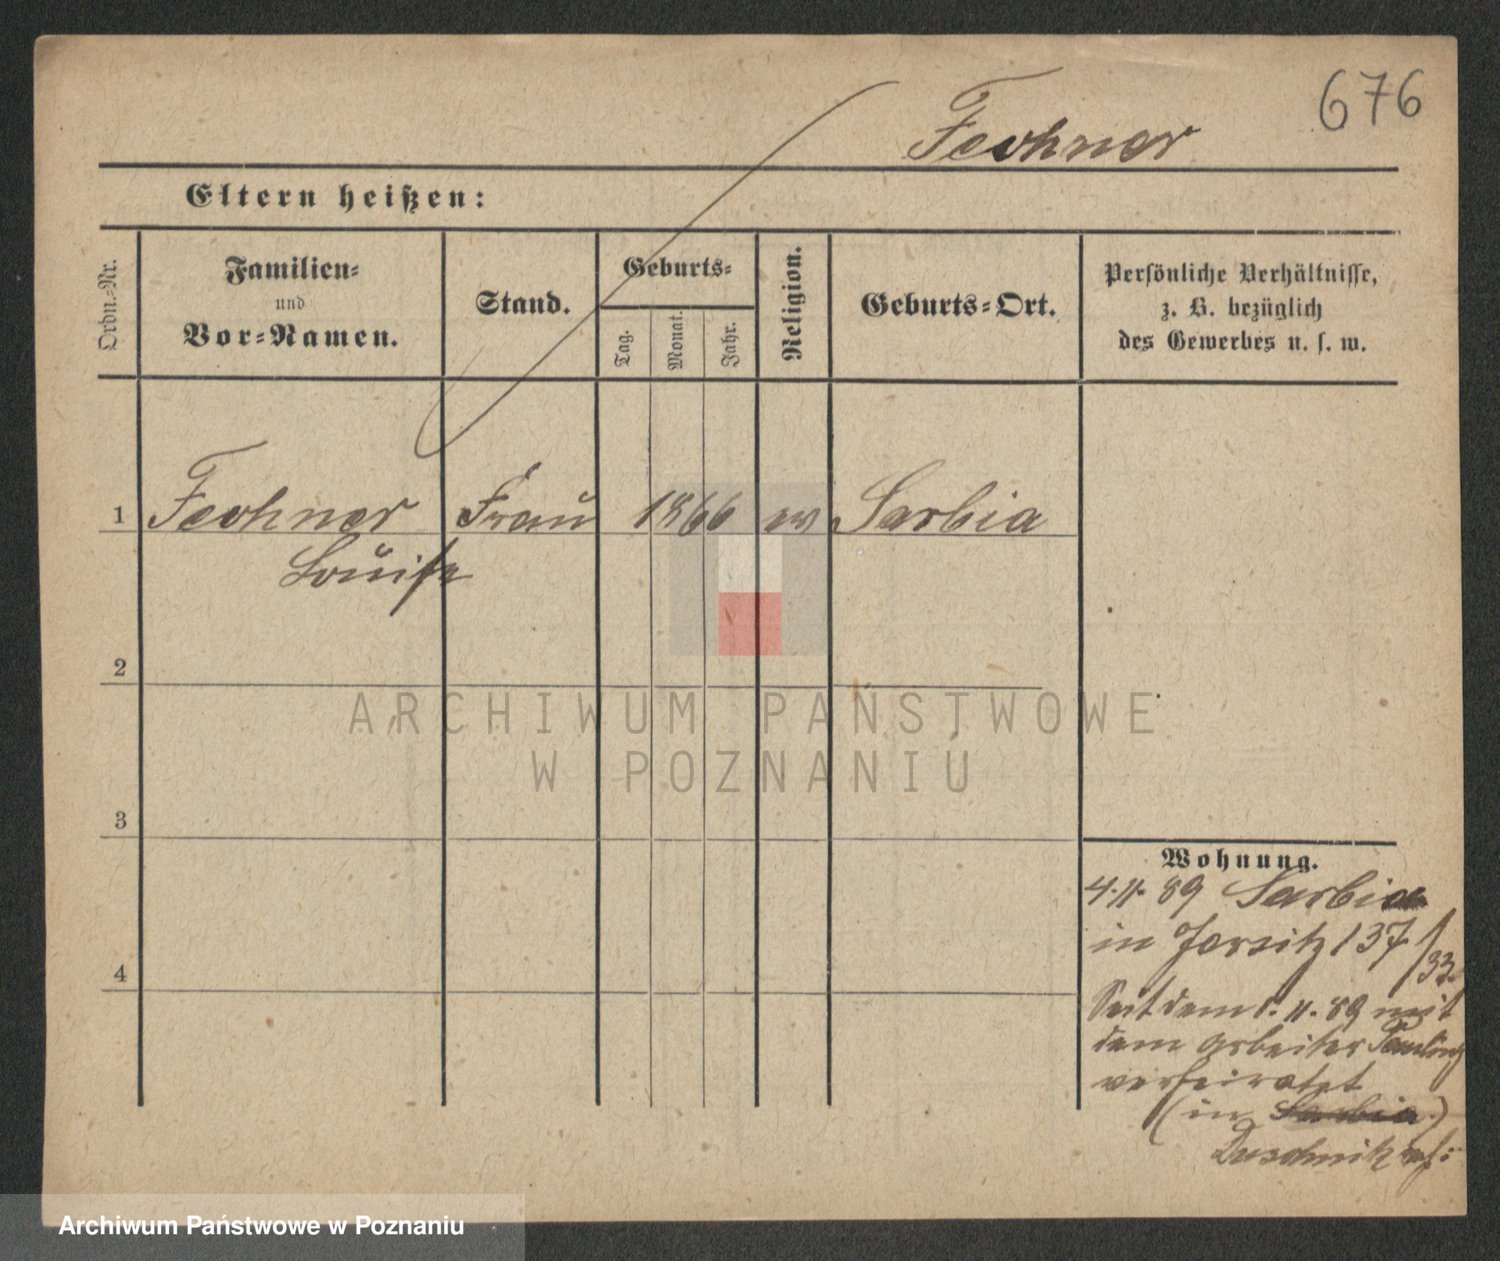 676
Fechner
Eltern heißen:
Ordn.-Nr.
Familien-
und
Vor-Namen.
Stand.
Geburts-
Tag.
Monat.
Jahr.
Religion.
Geburts-Ort.
Persönliche Verhältnisse,
z. B. bezüglich
des Gewerbes u. s. w.
1 Fechner Frau 1866 ev Sarbia
Louise
2
3
4
ARCHIWUM PAŃSTWOWE
W POZNANIU
Wohnung.
4.11.89 Sarbia
in Jersitz 137/33
Seit dem 1.11.89 mit
dem Arbeiter
verheiratet
(in Sarbia)
Duschnik
Archiwum Państwowe w Poznaniu